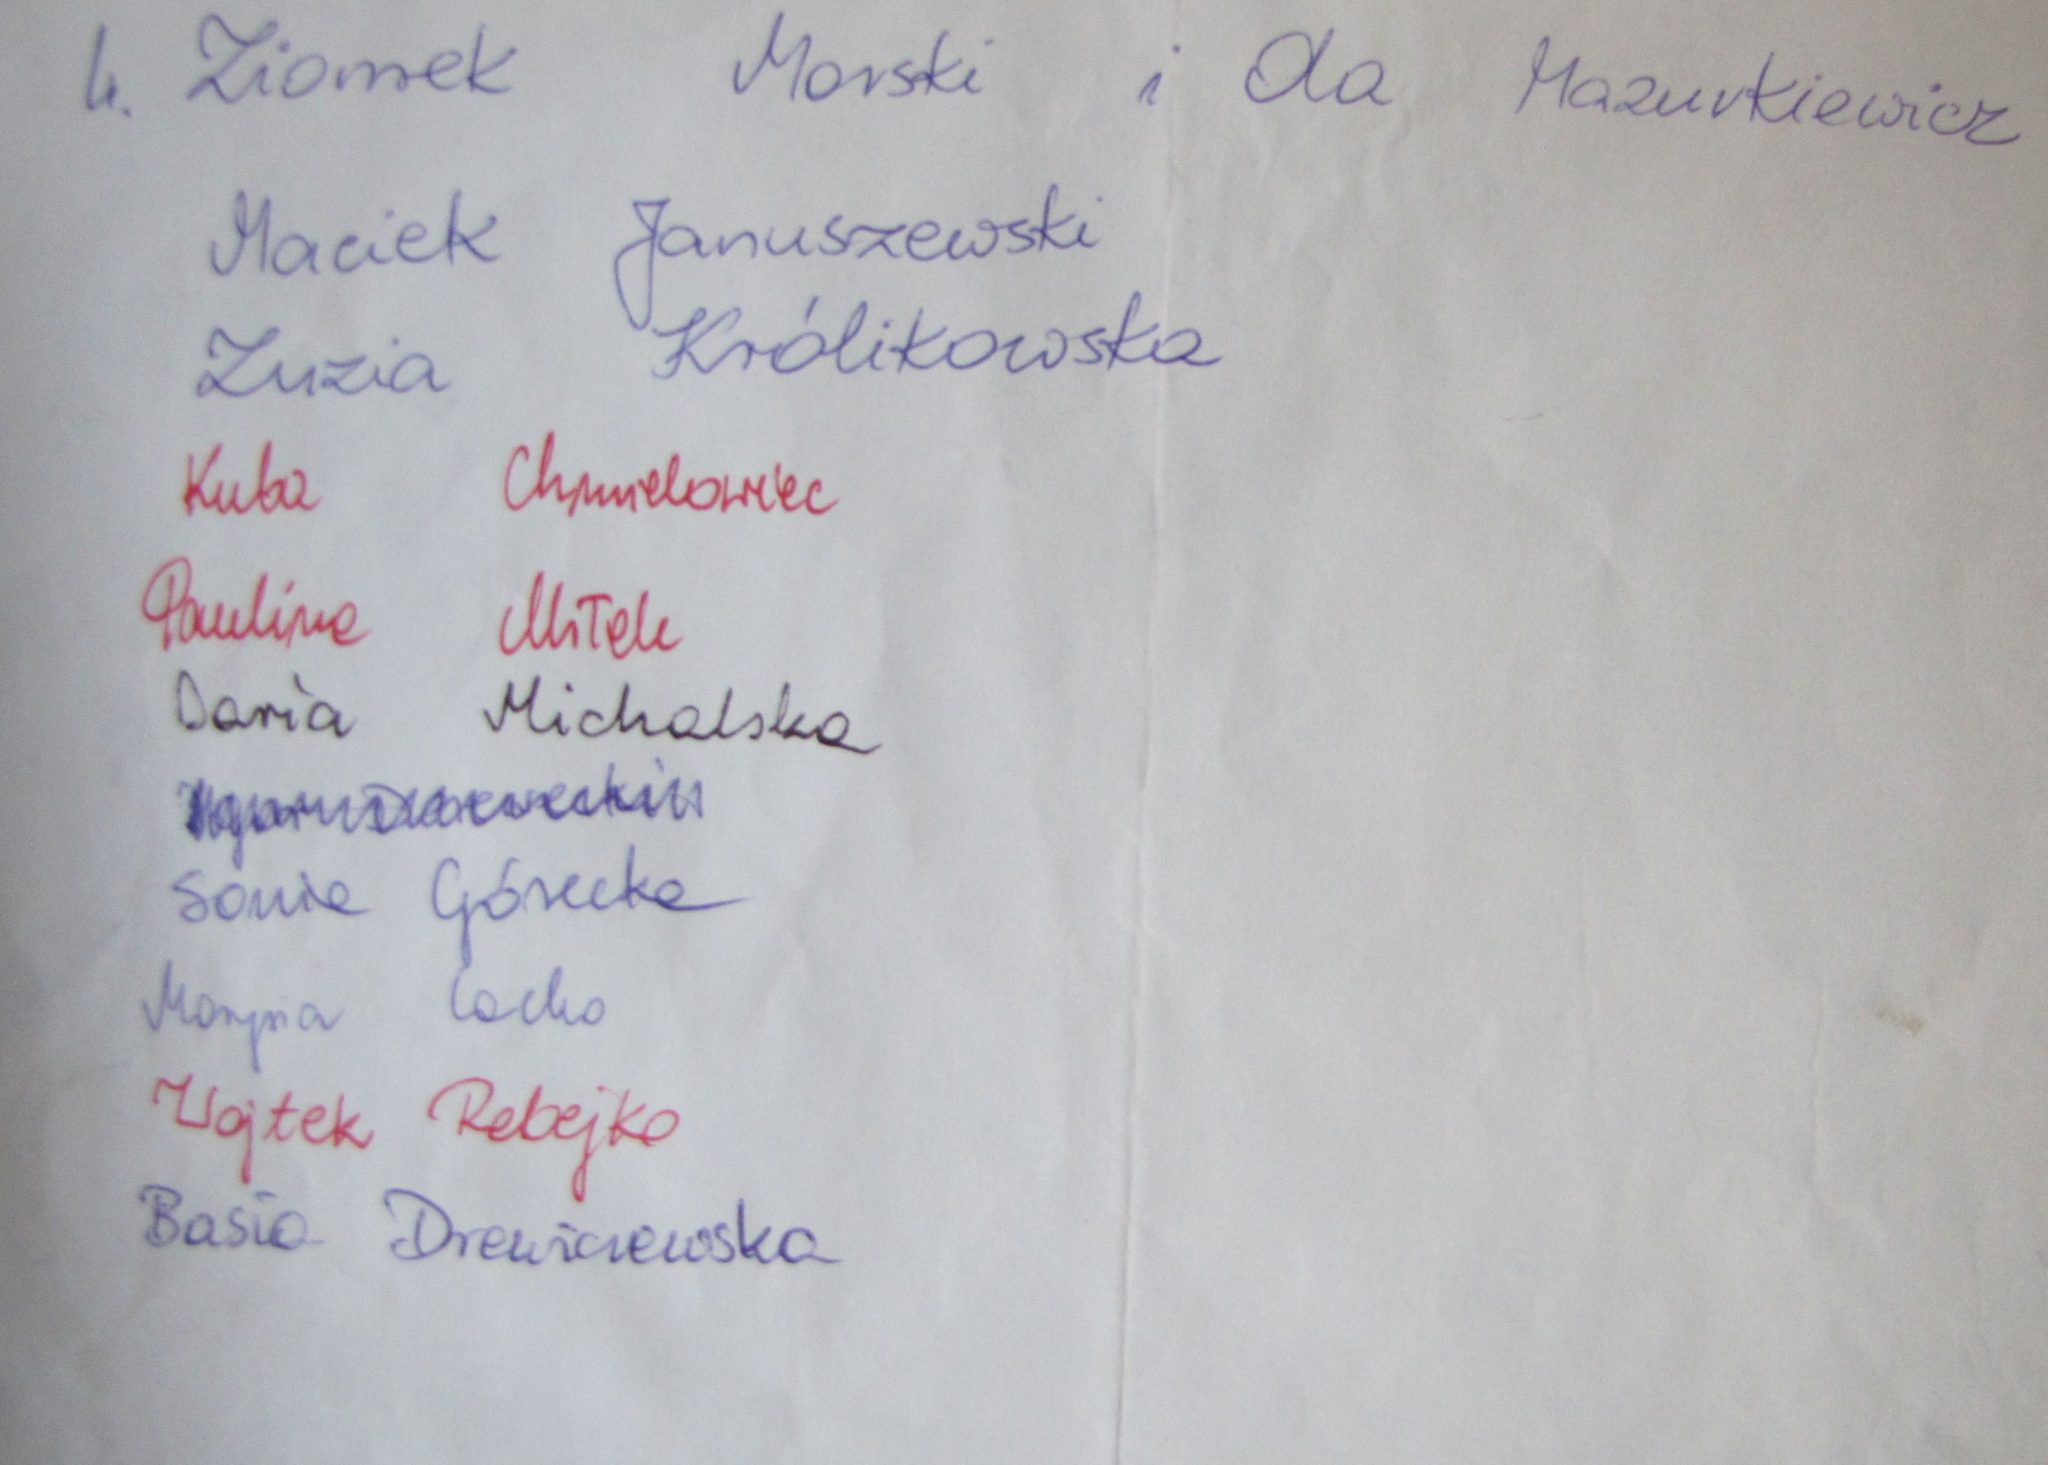 4. Ziomek Morski i Ola Mazurkiewicz
Maciek Januszewski
Zuzia Królikowska
Kuba Chmielowiec
Paulina Mitek
Daria Michalska
Sonia Górecka
Marysia Cocho
Wojtek Rebejko
Basia Drewiczewska